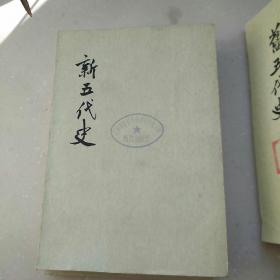 新五代史
五代史